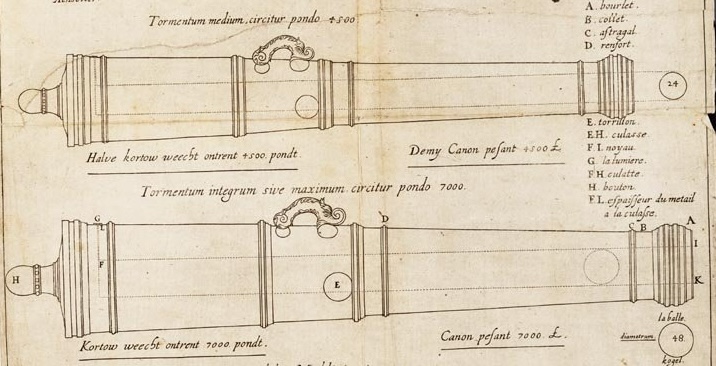 Tormentum medium, circitur pondo 4500
A. bourlet.
B. collet.
C. astragal.
D. renfort.
24
E. torrillon.
EH. culasse.
F I. noyau.
G. la lumiere.
F H. culatte.
H. bouton.
F L. espaisseur du metail
a la culasse.
Halve kortow weecht ontrent 4500. pondt.
Demy Canon pesant 4500 £.
Tormentum integrum sive maximum circitur pondo 7000.
G
L
F
H
E
D
C B
A
I
K
la balle.
diametrum
48.
kogel.
Kortow weecht ontrent 7000. pondt.
Canon pesant 7000 £.